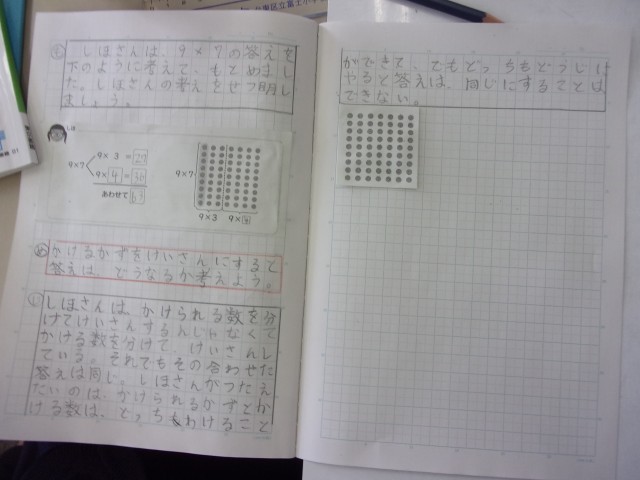 も しほさんは、9×7の答えを
下のように考えて、もとめまし
た。しほさんの考えをせつ明し
ましょう。
しほ
9×3=27
9×7
9×4=36
あわせて63
9×7
9×3 9×4
め かけるかずをけいさんにすると
答えは、どうなるか考えよう。
し しほさんは、かけられる数を分
けてけいさんするんじゃなくて
かける数を分けて、けいさんし
ている。それでもその合わせた
答えは同じ。しほさんがつたえ
たいのは、かけられるかずとか
ける数は、どっちもわけること
ができて、でもどっちもどうじに
やると答えは、同じにすることは
できない。